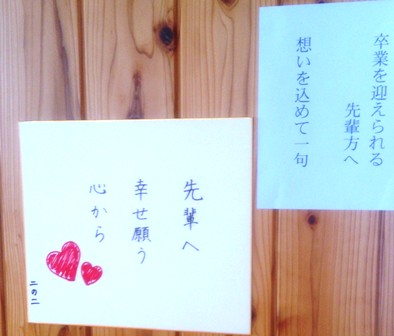 卒業を迎えられる
先輩方へ
想いを込めて一句
先輩へ
幸せ願う
心から
二の二